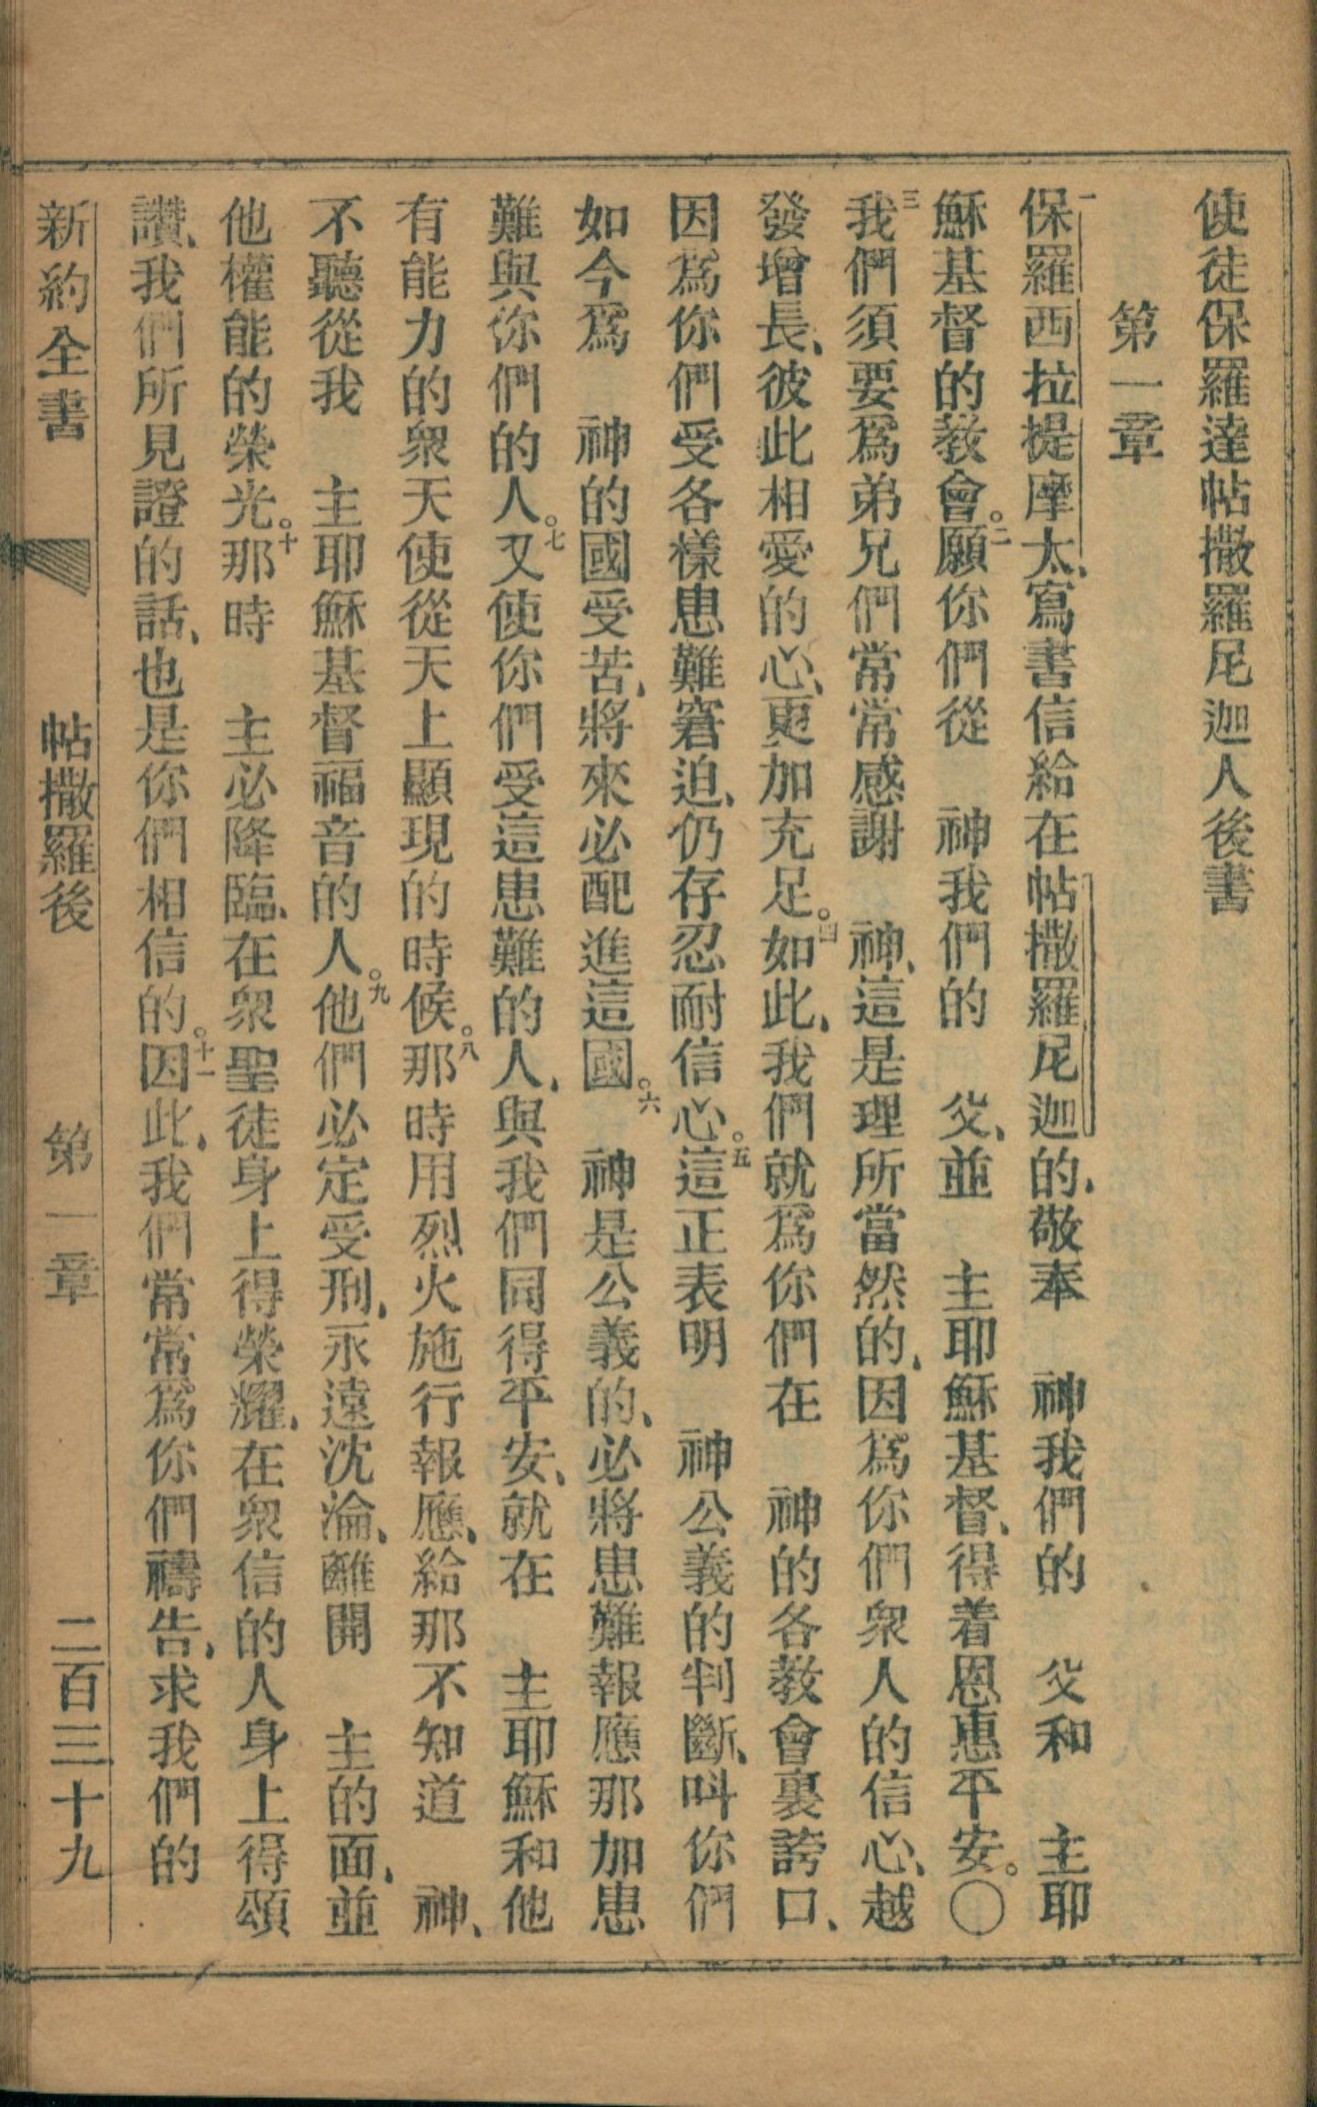 使徒保羅達帖撒羅尼迦人後書
第一章
一保羅西拉提摩太、寫書信給在帖撒羅尼迦的、敬奉　神我們的　父和　主耶
穌基督的教會。二願你們從　神我們的　父、並　主耶穌基督、得着恩惠平安。〇
三我們須要爲弟兄們常常感謝　神、這是理所當然的、因爲你們衆人的信心、越
發增長、彼此相愛的心、更加充足。四如此、我們就爲你們在　神的各教會裏誇口、
因爲你們受各樣患難窘迫、仍存忍耐信心。五這正表明　神公義的判斷、呌你們
如今爲　神的國受苦、將來必配進這國。六　神是公義的、必將患難報應那加患
難與你們的人。七又使你們受這患難的人、與我們同得平安、就在　主耶穌和他
有能力的衆天使從天上顯現的時候。八那時用烈火施行報應、給那不知道　神、
不聽從我　主耶穌基督福音的人。九他們必定受刑、永遠沈淪、離開　主的面、並
他權能的榮光。十那時　主必降臨、在衆聖徒身上得榮耀、在衆信的人身上得頌
讚、我們所見證的話、也是你們相信的。十一因此、我們常常爲你們禱告、求我們的
新約全書　帖撒羅後　第一章　二百三十九